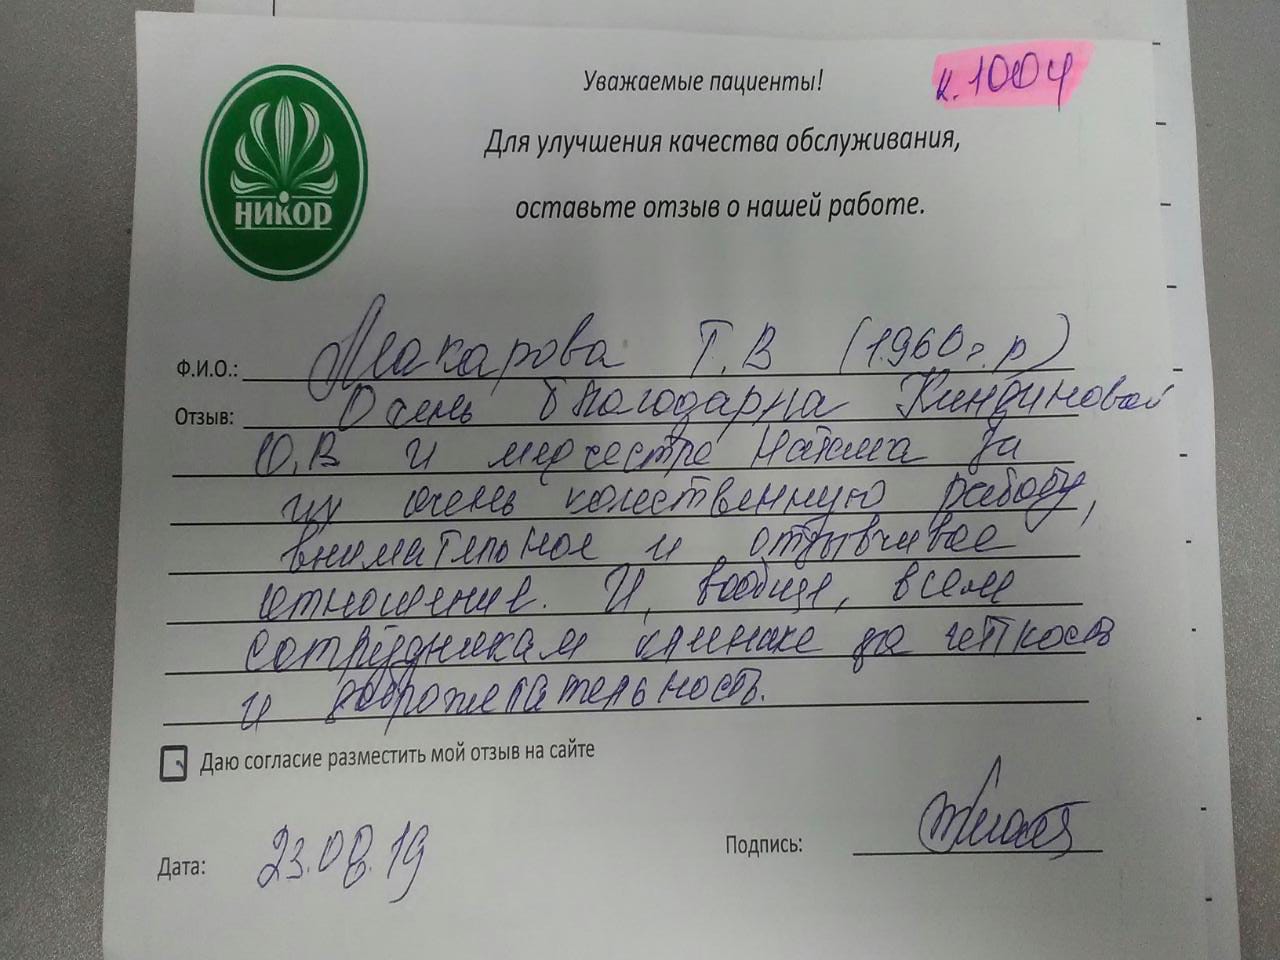 к.1004
Уважаемые пациенты!
Для улучшения качества обслуживания,
оставьте отзыв о нашей работе.
НИКОР
Ф.И.О.: Макарова Т.В (1960г.р)
Отзыв: Очень благодарна Киндиновой
О.В и медсестре Наташа за
их очень качественную работу,
внимательное и отзывчивое
отношение. И, вообще, всем
сотрудникам клинике за чёткость
и доброжелательность.
Даю согласие разместить мой отзыв на сайте
Дата: 23.08.19
Подпись: